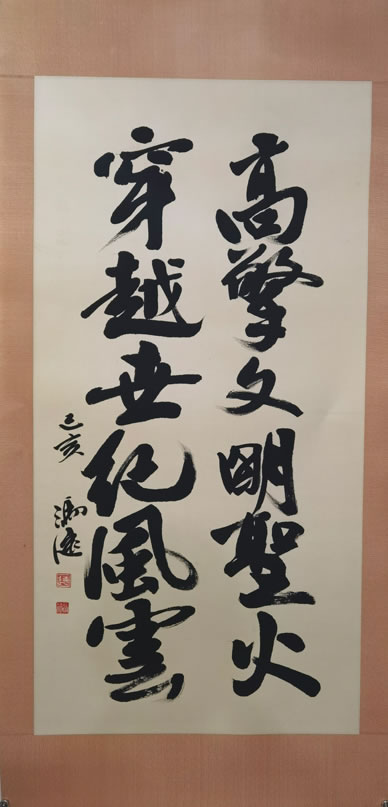 高擎文明聖火
穿越世纪風雲
己亥